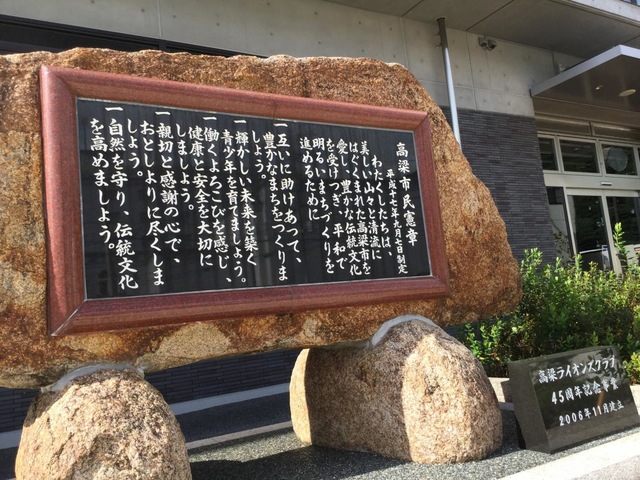 高梁市民憲章
平成十七年九月七日制定
わたくしたちは、
美しい山々と清流に
はぐくまれた高梁市を
愛し、豊かな伝統文化
を受けつぎ、平和で
明るいまちづくりを
進めるために
一互いに助けあって、
豊かなまちをつくりま
しょう。
一輝かしい未来を築く
青少年を育てましょう。
一働くよろこびを感じ、
健康と安全を大切に
しましょう。
一親切と感謝の心で、
おとしよりに尽くしま
しょう。
一自然を守り、伝統文化
を高めましょう。
高梁ライオンズクラブ
45周年記念事業
2006年11月建立